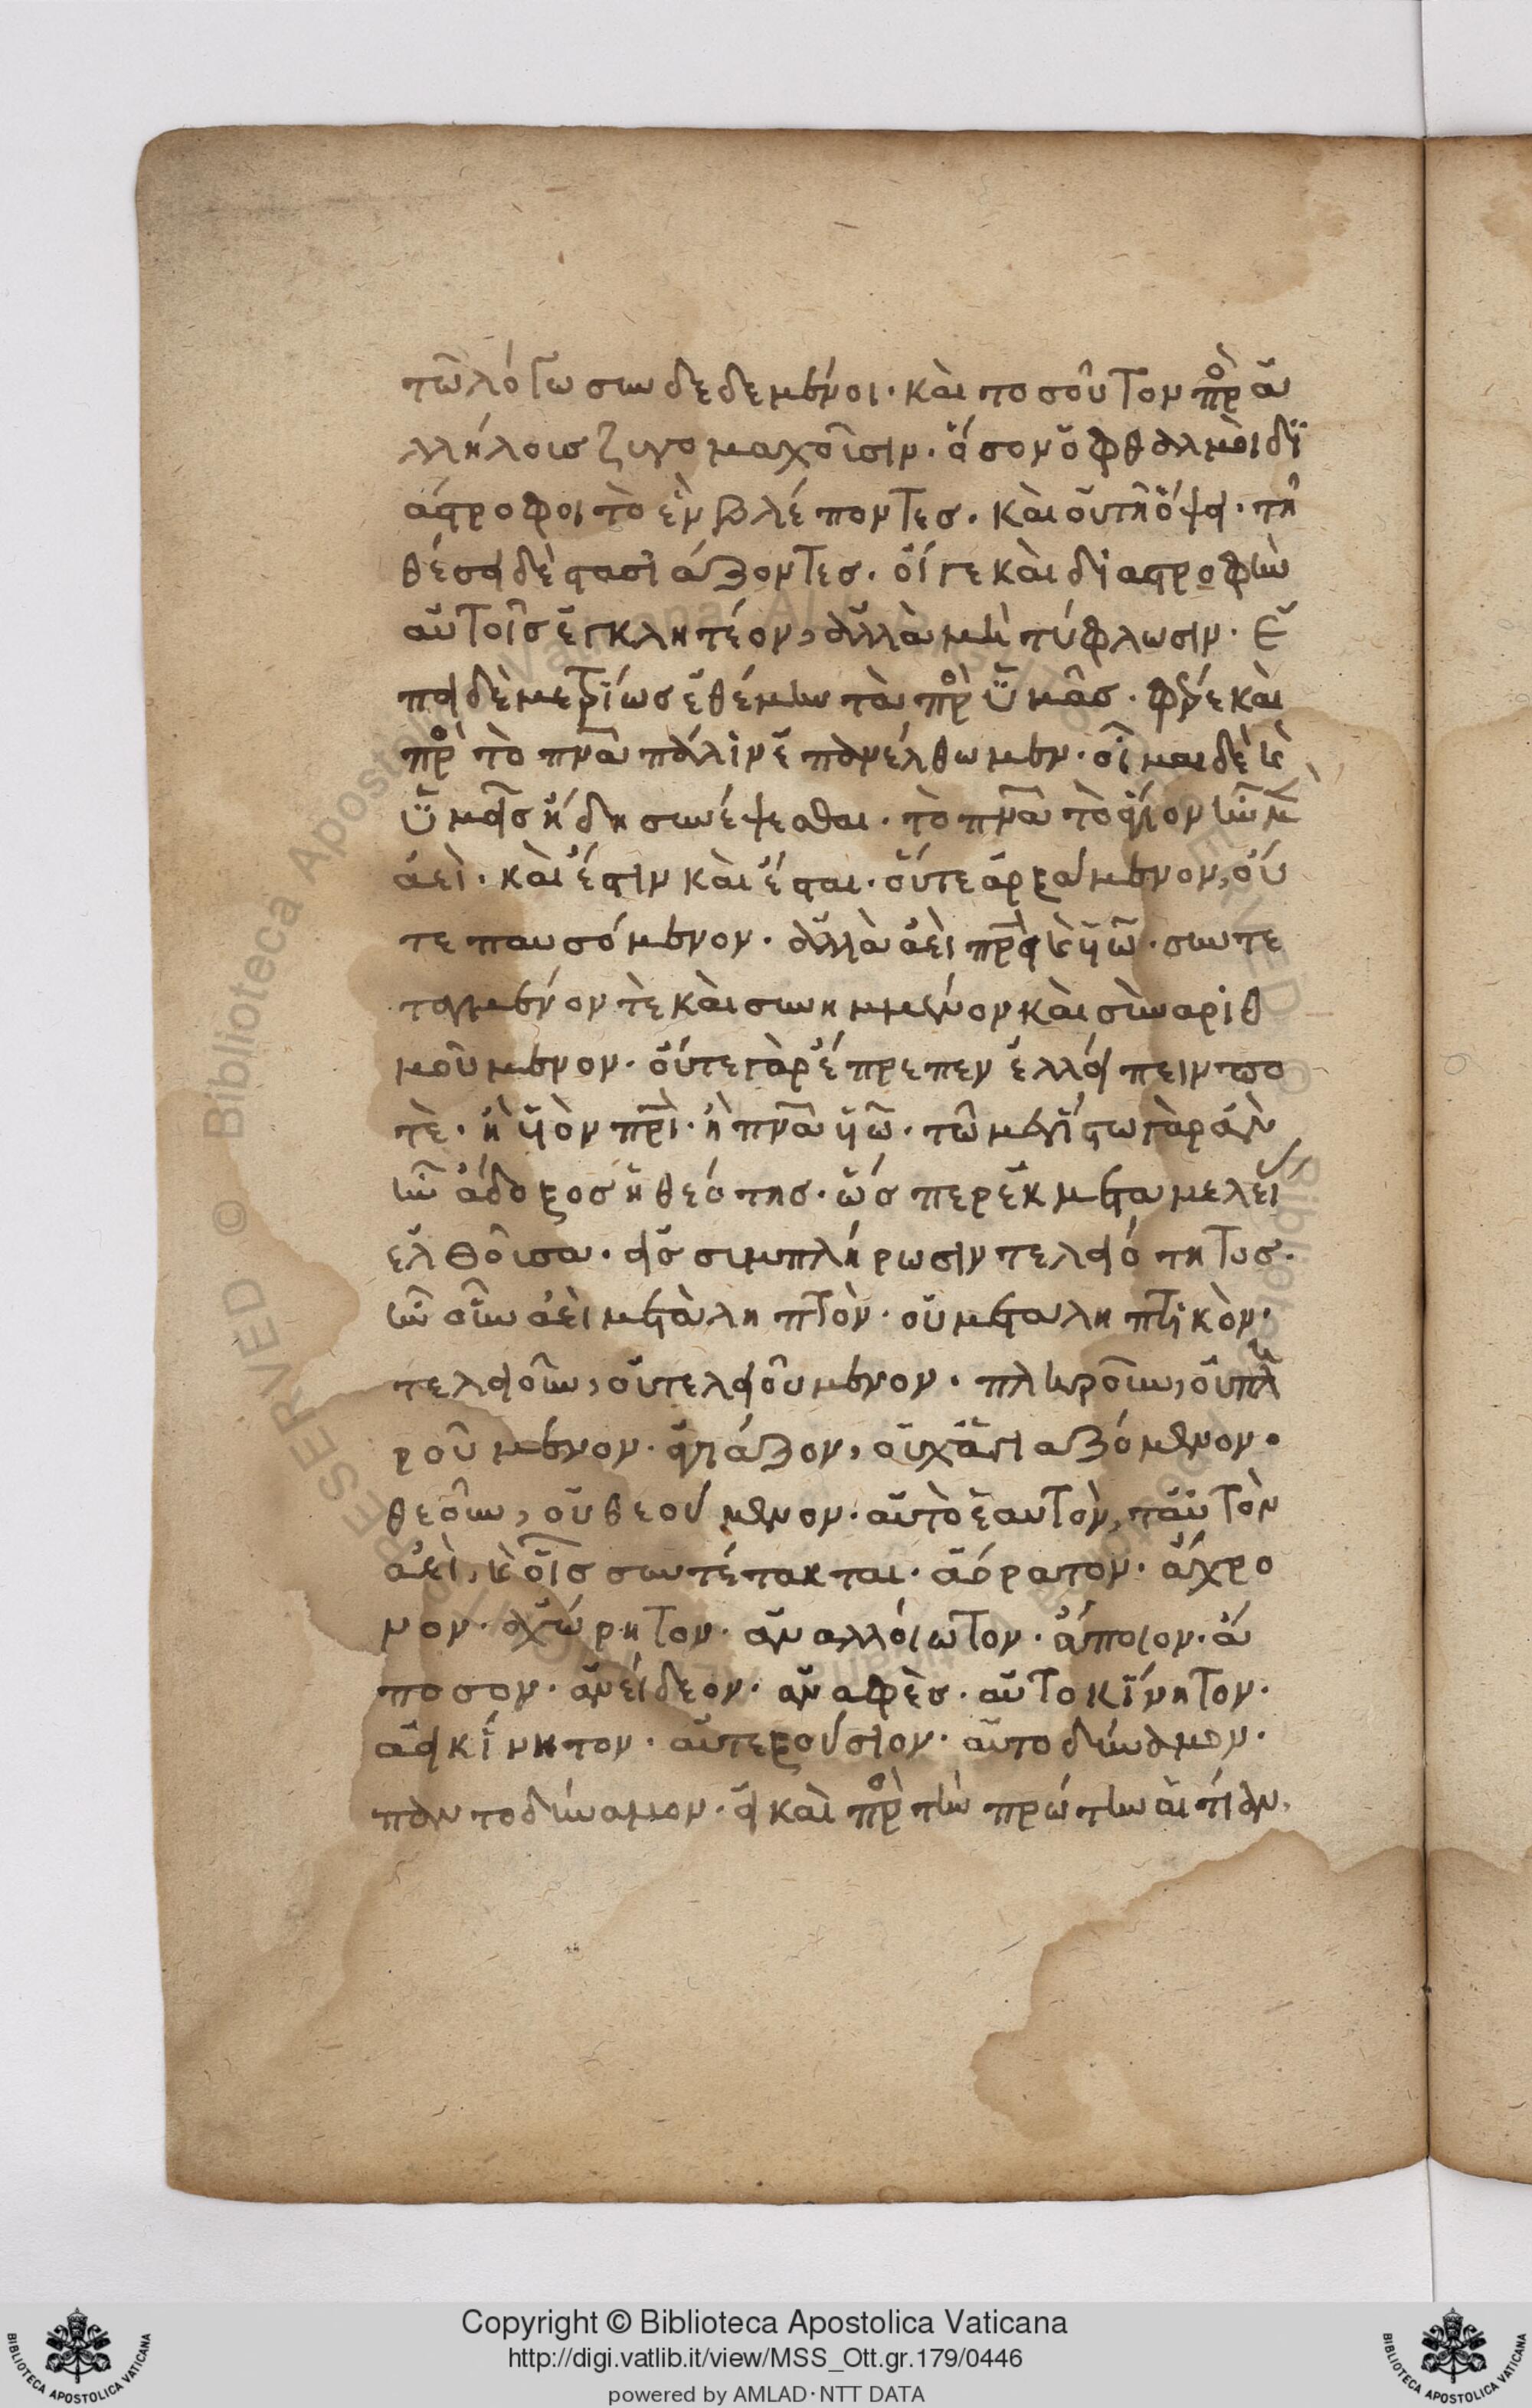 τῶ λόγω συνδεδεμένοι· καὶ τοσοῦτον πρὸς ἀ
λλήλοις ζυγομαχοῦσιν· ὅσον ὀφθαλμοὶ δι
άστροφοι τὸ ἓν βλέποντες· καὶ οὐ τῆ ὄψει· τῆ
θέσει δὲ στασιάζοντες· εἴ γε καὶ διαστροφὴν
αὐτοῖς ἐγκλητέον, ἀλλὰ μὴ τύφλωσιν· ἐ
πεὶ δὲ μετρίως ἐθέμην τὰ πρὸς ὑμᾶς· φέρε καὶ
πρὸς τὸ πνα πάλιν ἐπανέλθωμεν· οἶμαι δὲ καὶ
ὑμεῖς ἤδη συνέψεσθαι· τὸ πνα τὸ ἅγιον ἦν μ
ἀεὶ· καὶ ἔστιν καὶ ἔσται· οὔτε ἀρξάμενον, οὔ
τε παυσόμενον· ἀλλὰ ἀεὶ πρι καὶ υἱῶ· συντε
ταγμένον τὲ καὶ συνημμένον καὶ συναριθ
μούμενον· οὔτε γὰρ ἔπρεπεν ἐλλείπειν πο
τὲ· ἢ υἱὸν πρι· ἢ πνα υἱῶ· τῶ μεγίστω γὰρ ἂν
ἦν ἄδοξος ἡ θεότης· ὥσπερ ἐκ μεταμελεί
ελθοῦσα· εἰς συμπλήρωσιν τελειότητος·
ἦν οὖν ἀεὶ μεταληπτὸν· οὐ μεταληπτικὸν·
τελειοῦν, οὐ τελειούμενον· πληροῦν, οὐ πλη
ρούμενον· ἁγιάζον, οὐχ ἁγιαζόμενον·
θεοῦν, οὐ θεούμενον· αὐτὸ ἑαυτὸν, ταὐτὸν
ἀεὶ, καὶ οἷς συντέτακται· ἀόρατον· ἄχρο
νον· ἀχώρητον· ἀναλλοίωτον· ἄποιον· ἄ
ποσον· ἀνείδεον· ἀναφὲς· αὐτοκίνητον·
ἀεικίνητον· αὐτεξούσιον· αὐτοδύναμον·
παντοδύναμον· εἰ καὶ πρὸς τὴν πρώτην αἰτίαν,
Copyright © Biblioteca Apostolica Vaticana
http://digi.vatlib.it/view/MSS_Ott.gr.179/0446
powered by AMLAD·NTT DATA